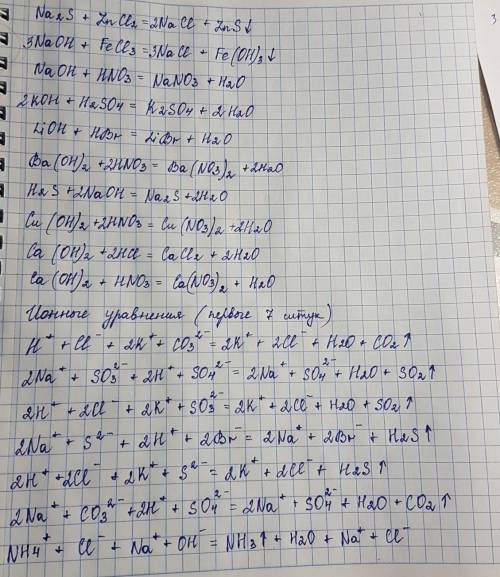 Na2S + ZnCl2 = 2NaCl + ZnS↓
3NaOH + FeCl3 = 3NaCl + Fe(OH)3↓
NaOH + HNO3 = NaNO3 + H2O
2KOH + H2SO4 = K2SO4 + 2H2O
LiOH + HBr = LiBr + H2O
Ba(OH)2 + 2HNO3 = Ba(NO3)2 + 2H2O
H2S + 2NaOH = Na2S + 2H2O
Cu(OH)2 + 2HNO3 = Cu(NO3)2 + 2H2O
Ca(OH)2 + 2HCl = CaCl2 + 2H2O
Ca(OH)2 + HNO3 = Ca(NO3)2 + H2O
Ионные уравнения (первые 7 штук)
H⁺ + Cl⁻ + 2K⁺ + CO3²⁻ = 2K⁺ + 2Cl⁻ + H2O + CO2↑
2Na⁺ + SO3²⁻ + 2H⁺ + SO4²⁻ = 2Na⁺ + SO4²⁻ + H2O + SO2↑
2H⁺ + 2Cl⁻ + 2K⁺ + SO3²⁻ = 2K⁺ + 2Cl⁻ + H2O + SO2↑
2Na⁺ + S²⁻ + 2H⁺ + 2Br⁻ = 2Na⁺ + 2Br⁻ + H2S↑
2H⁺ + 2Cl⁻ + 2K⁺ + S²⁻ = 2K⁺ + 2Cl⁻ + H2S↑
2Na⁺ + CO3²⁻ + 2H⁺ + SO4²⁻ = 2Na⁺ + SO4²⁻ + H2O + CO2↑
NH4⁺ + Cl⁻ + Na⁺ + OH⁻ = NH3↑ + H2O + Na⁺ + Cl⁻